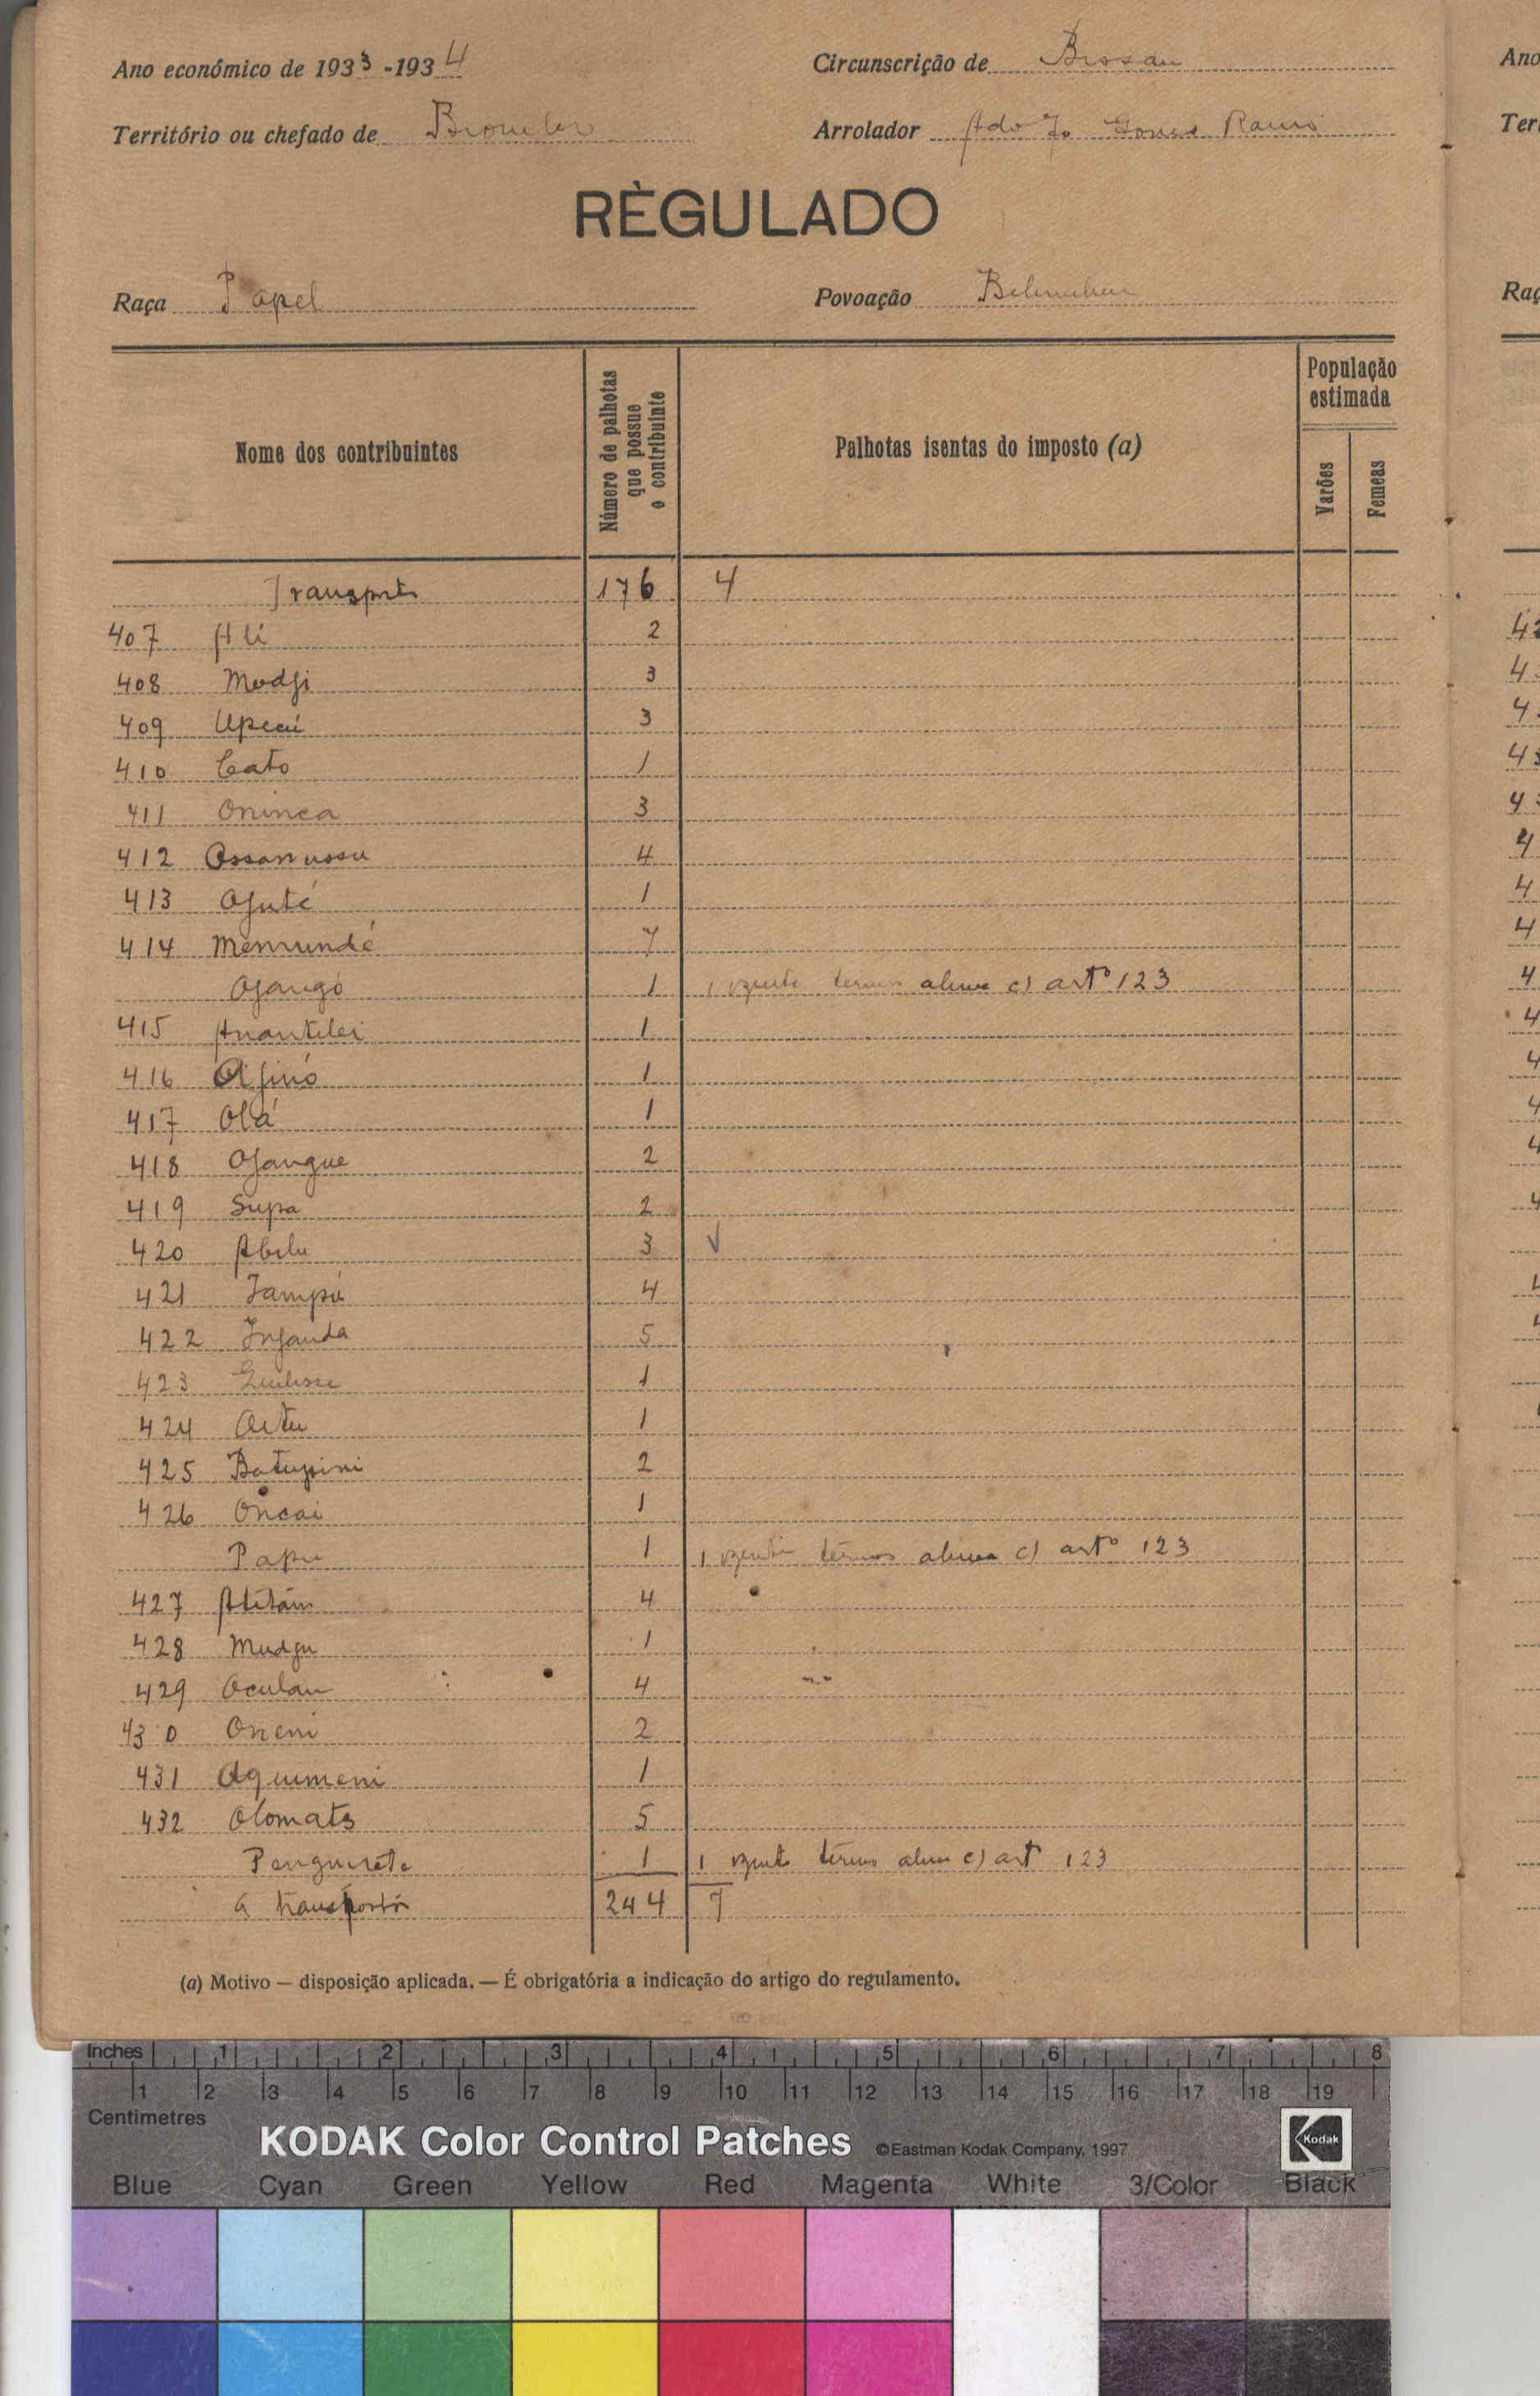 Ano económico de 1933-1934
Circunscrição de Bissau
Território ou chefado de
Arrolador Gomes Ramos
RÈGULADO
Raça Papel
Povoação
Nome dos contribuintes
Número de palhotas que possue o contribuinte
Palhotas isentas do imposto (a)
População estimada
Varões
Femeas
Transporte 176 4
407 Ali 2
408 Modji 3
409 Upcai 3
410 Cato 1
411 Oninca 3
412 Ossanussu 4
413 Ojuté 1
414 Menrundé 7
Ojangó 1 1 izente termos alinea c) artº 123
415 1
416 1
417 Olá 1
418 Ojangue 2
419 Supa 2
420 Abilu 3 √
421 Jampú 4
422 Injanda 5
423 1
424 1
425 2
426 Oncai 1
Papu 1 1 izente termos alinea c) artº 123
427 4
428 Mudju 1
429 Oculau 4
430 Oneni 2
431 Aquimeni 1
432 Olomats 5
1 1 izente termos alinea c) art 123
A transportar 244 7
(a) Motivo — disposição aplicada. — É obrigatória a indicação do artigo do regulamento.
Inches 1 2 3 4 5 6 7 8
1 2 3 4 5 6 7 8 9 10 11 12 13 14 15 16 17 18 19
Centimetres
KODAK Color Control Patches ©Eastman Kodak Company, 1997 Kodak
Blue Cyan Green Yellow Red Magenta White 3/Color Black